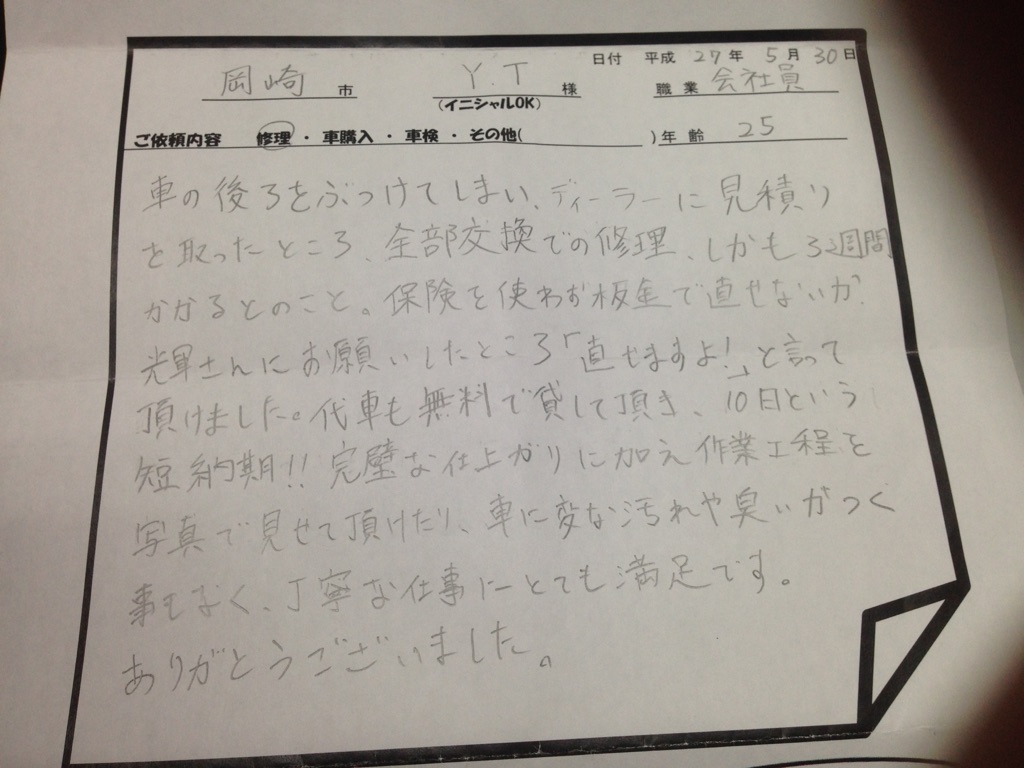 日付 平成 27年 5月 30日
岡崎 市 Y.T 様 職業 会社員
(イニシャルOK)
ご依頼内容 修理・車購入・車検・その他( )年齢 25
車の後ろをぶつけてしまい、ディーラーに見積り
を取ったところ、全部交換での修理、しかも3週間
かかるとのこと。保険を使わず板金で直せないか、
光軍さんにお願いしたところ「直せますよ!」と言って
頂けました。代車も無料で貸して頂き、10日という
短納期!!完璧な仕上がりに加え作業工程を
写真で見せて頂けたり、車に変な汚れや臭いがつく
事もなく、丁寧な仕事にとても満足です。
ありがとうございました。